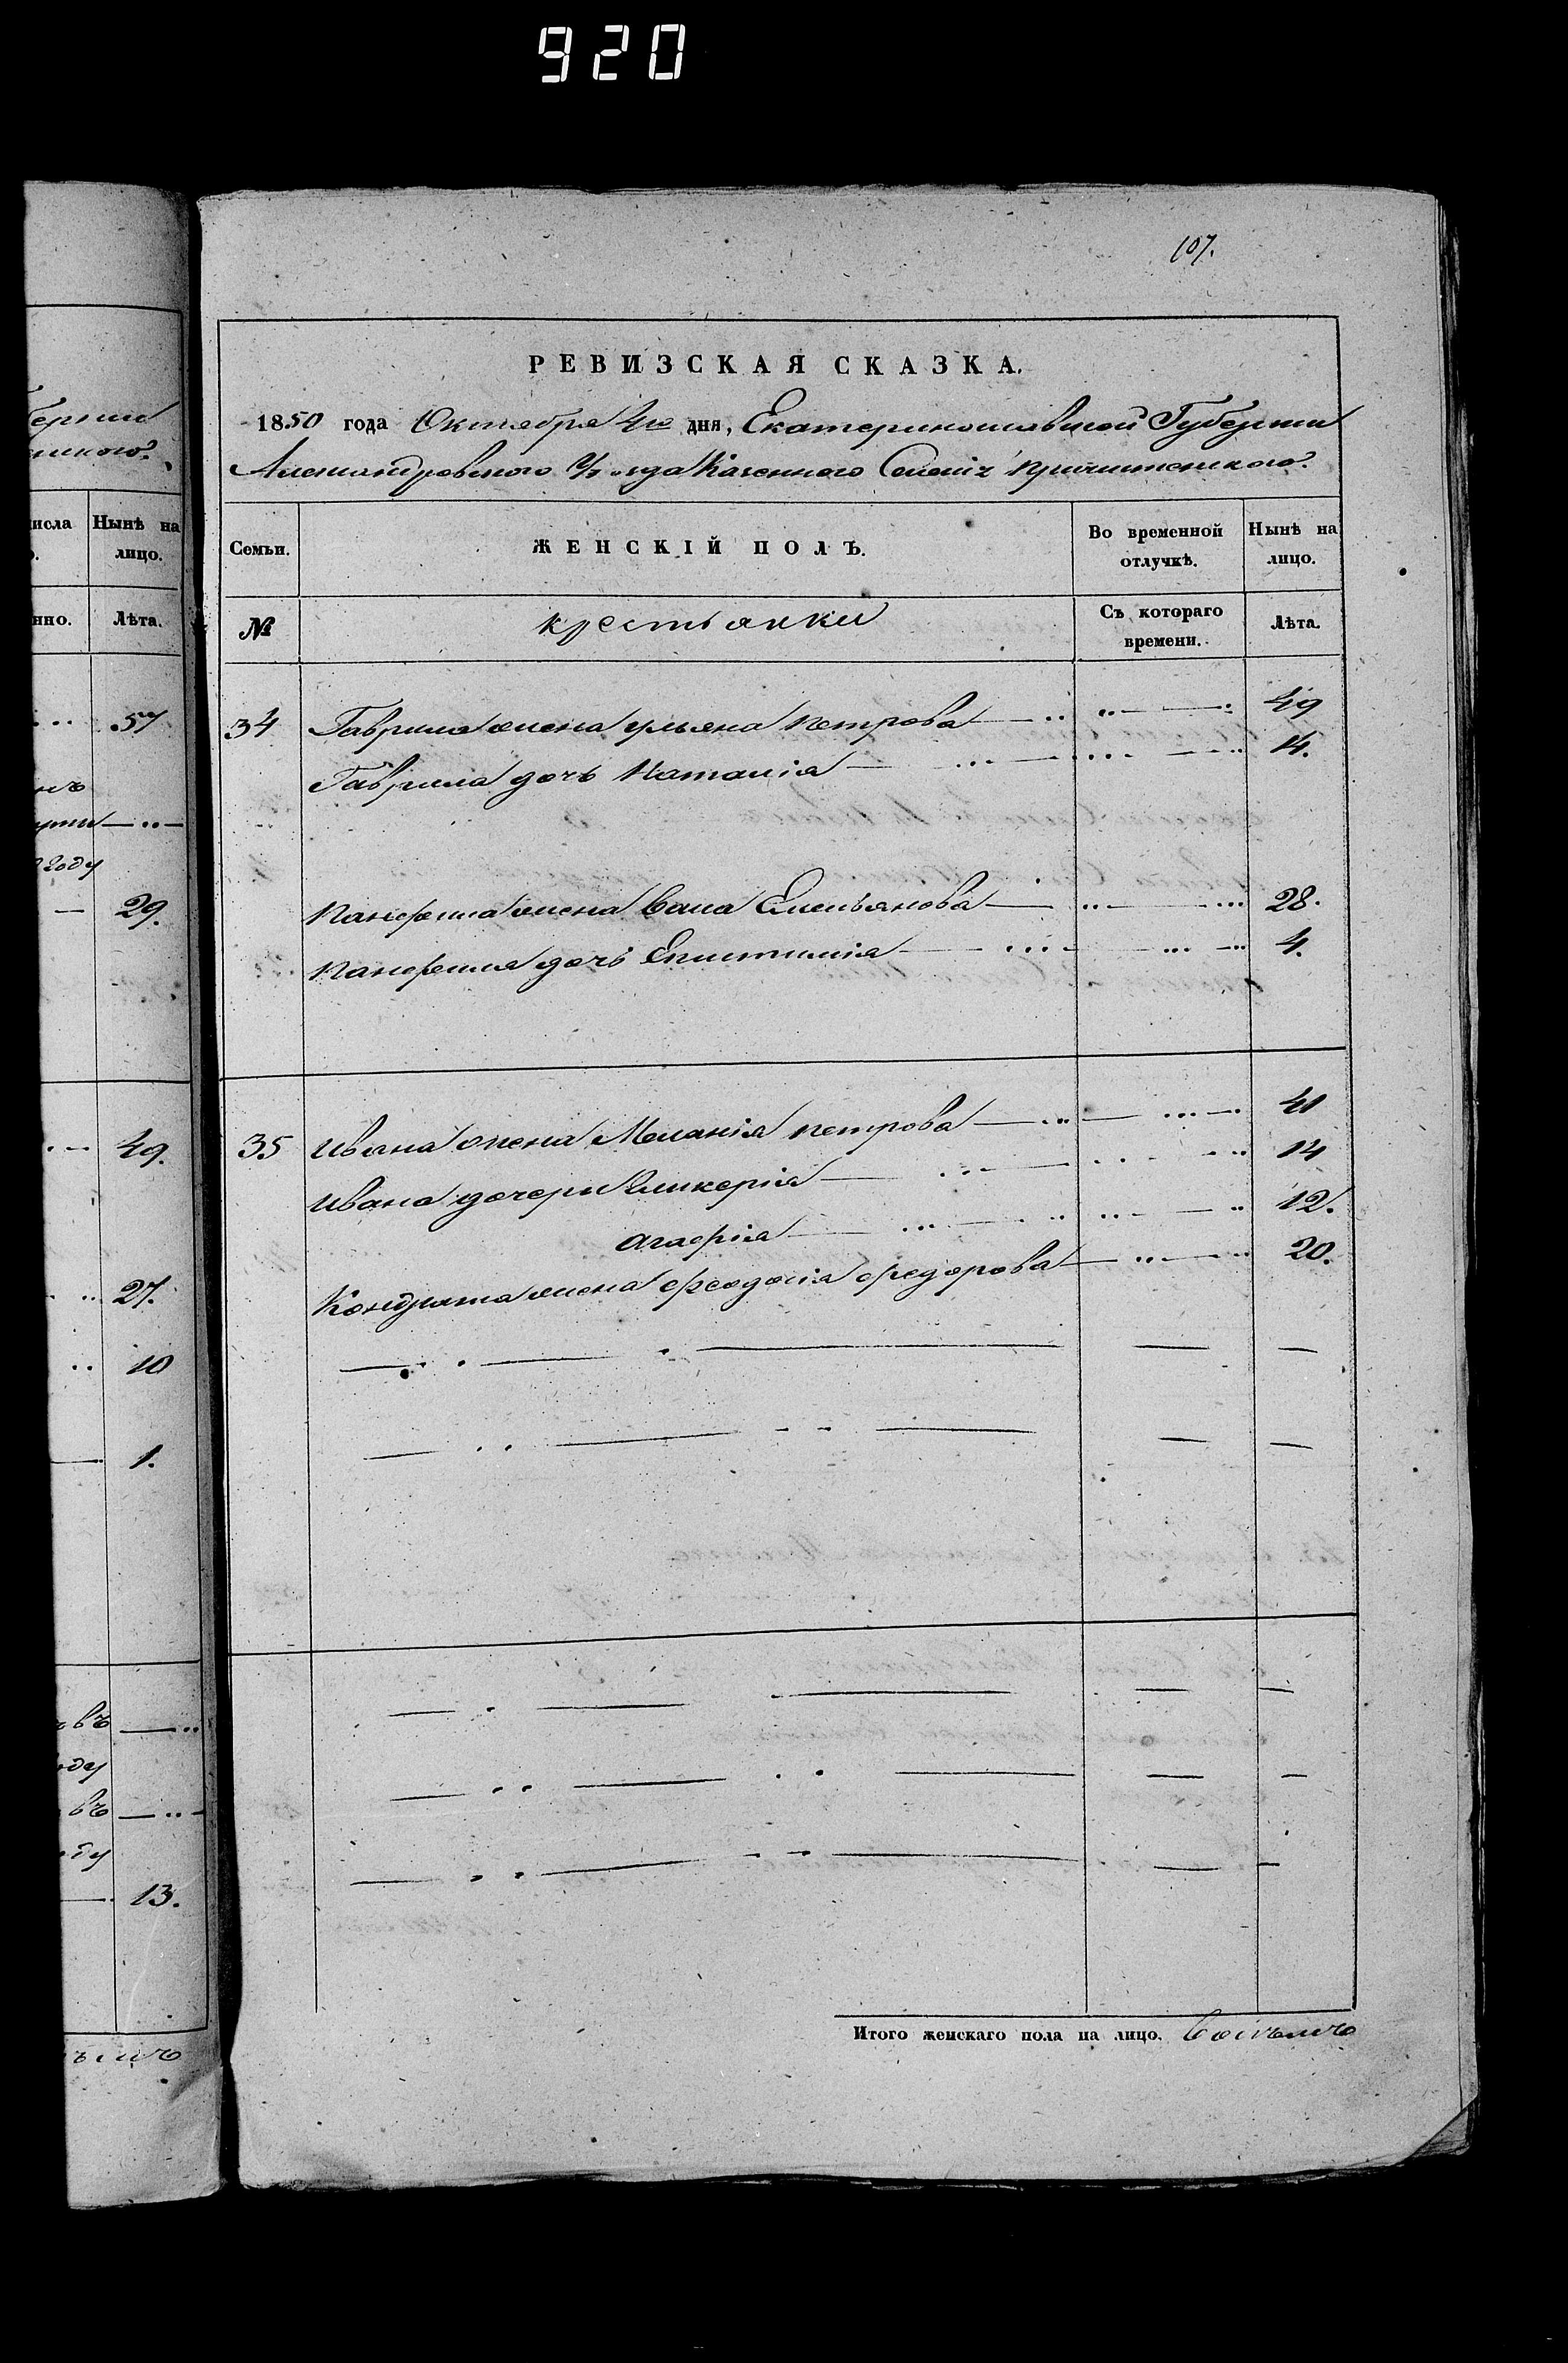 920
107.
РЕВИЗСКАЯ СКАЗКА.
1850 года Октября 4го дня, Екатеринославской Губернии
Александровского Уезда Казенного Селения Причитенского.
исла
Нынѣ на лицо.
Семьи.
ЖЕНСКІЙ ПОЛЪ.
Во временной отлучкѣ.
Нынѣ на лицо.
нно.
Лѣта.
№
крестьянки
Съ котораго времени.
Лѣта.
57
34 Гаврила жена Ульяна Петрова 49
Гаврила дочь Наталія 14.
году
29.
Панфила жена Васа Емельянова 28.
Панфила дочь Епистимія 4.
49.
35 Ивана жена Меланія Петрова 41
Ивана дочери Гликерія 14
Агафія 12.
27.
Кондрата жена Феодосія Федорова 20.
10
1.
въ
оду
въ
оду
13.
Итого женскаго пола на лицо. Восѣмъ